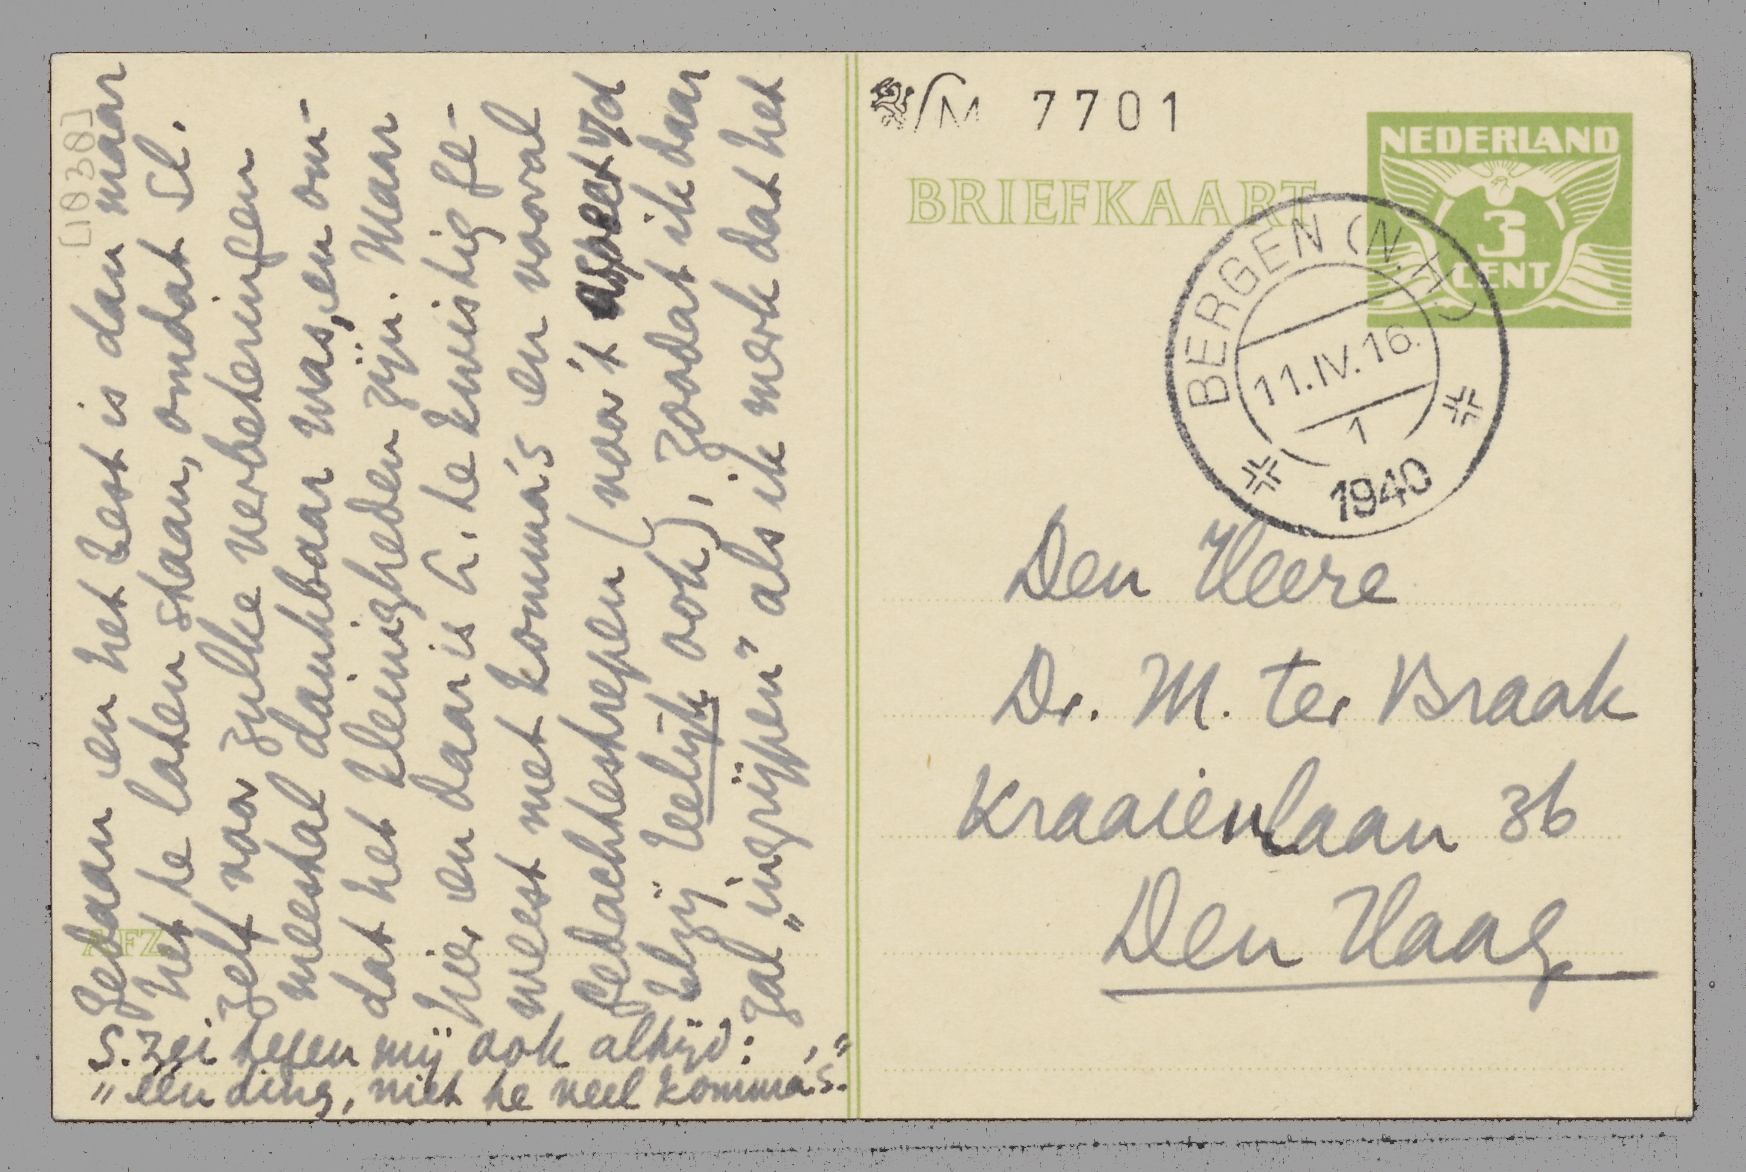 gedaan en het best is dan maar
het te laten staan, omdat Sl.
zelf voor zulke verbeteringen
meestal dankbaar was, en om-
dat het kleinigheden zijn. Maar
hier en daar is G. te kwistig ge-
weest met komma's en vooral
gedachtestrepen (voor 't aspect v/d
blzij leelijk ook), zoodat ik daar
zal „ingrijpen" als ik merk dat het
S. zei tegen mij ook altijd:
„één ding, niet te veel komma's."
[1038]
AFZ
M 7701
BRIEFKAART
NEDERLAND
3
CENT
BERGEN (N.H.)
11.IV.16.
1
1940
Den Heere
Dr. M. ter Braak
Kraaienlaan 36
Den Haag